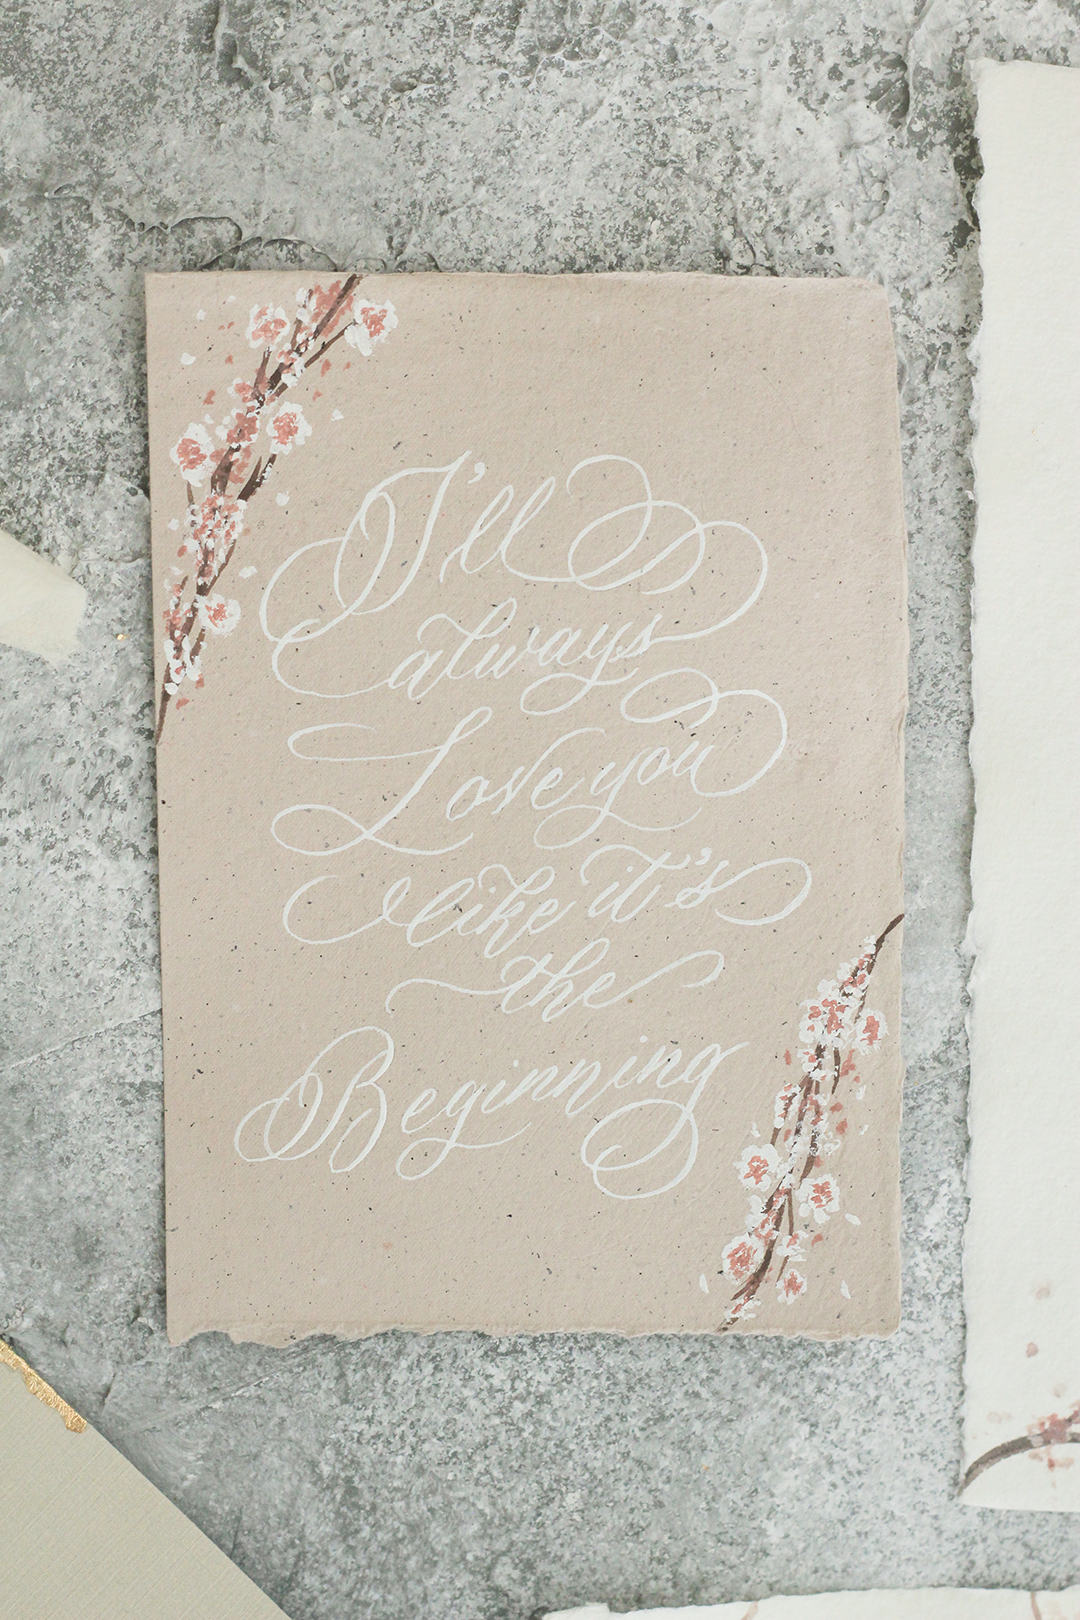 I'll
always
Love you
like it's
the
Beginning